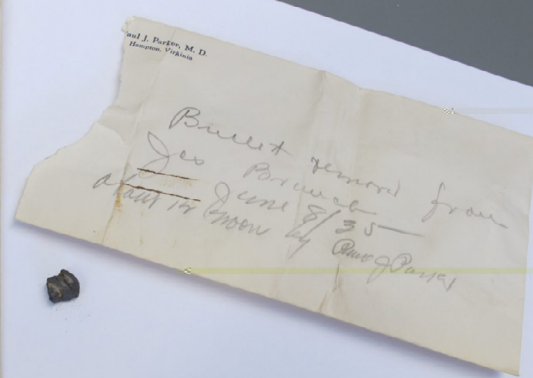 Paul J. Parker, M. D.
Hampton, Virginia
Bullet removed from
Jas
June 8/35
about 12 noon by Paul J Parker